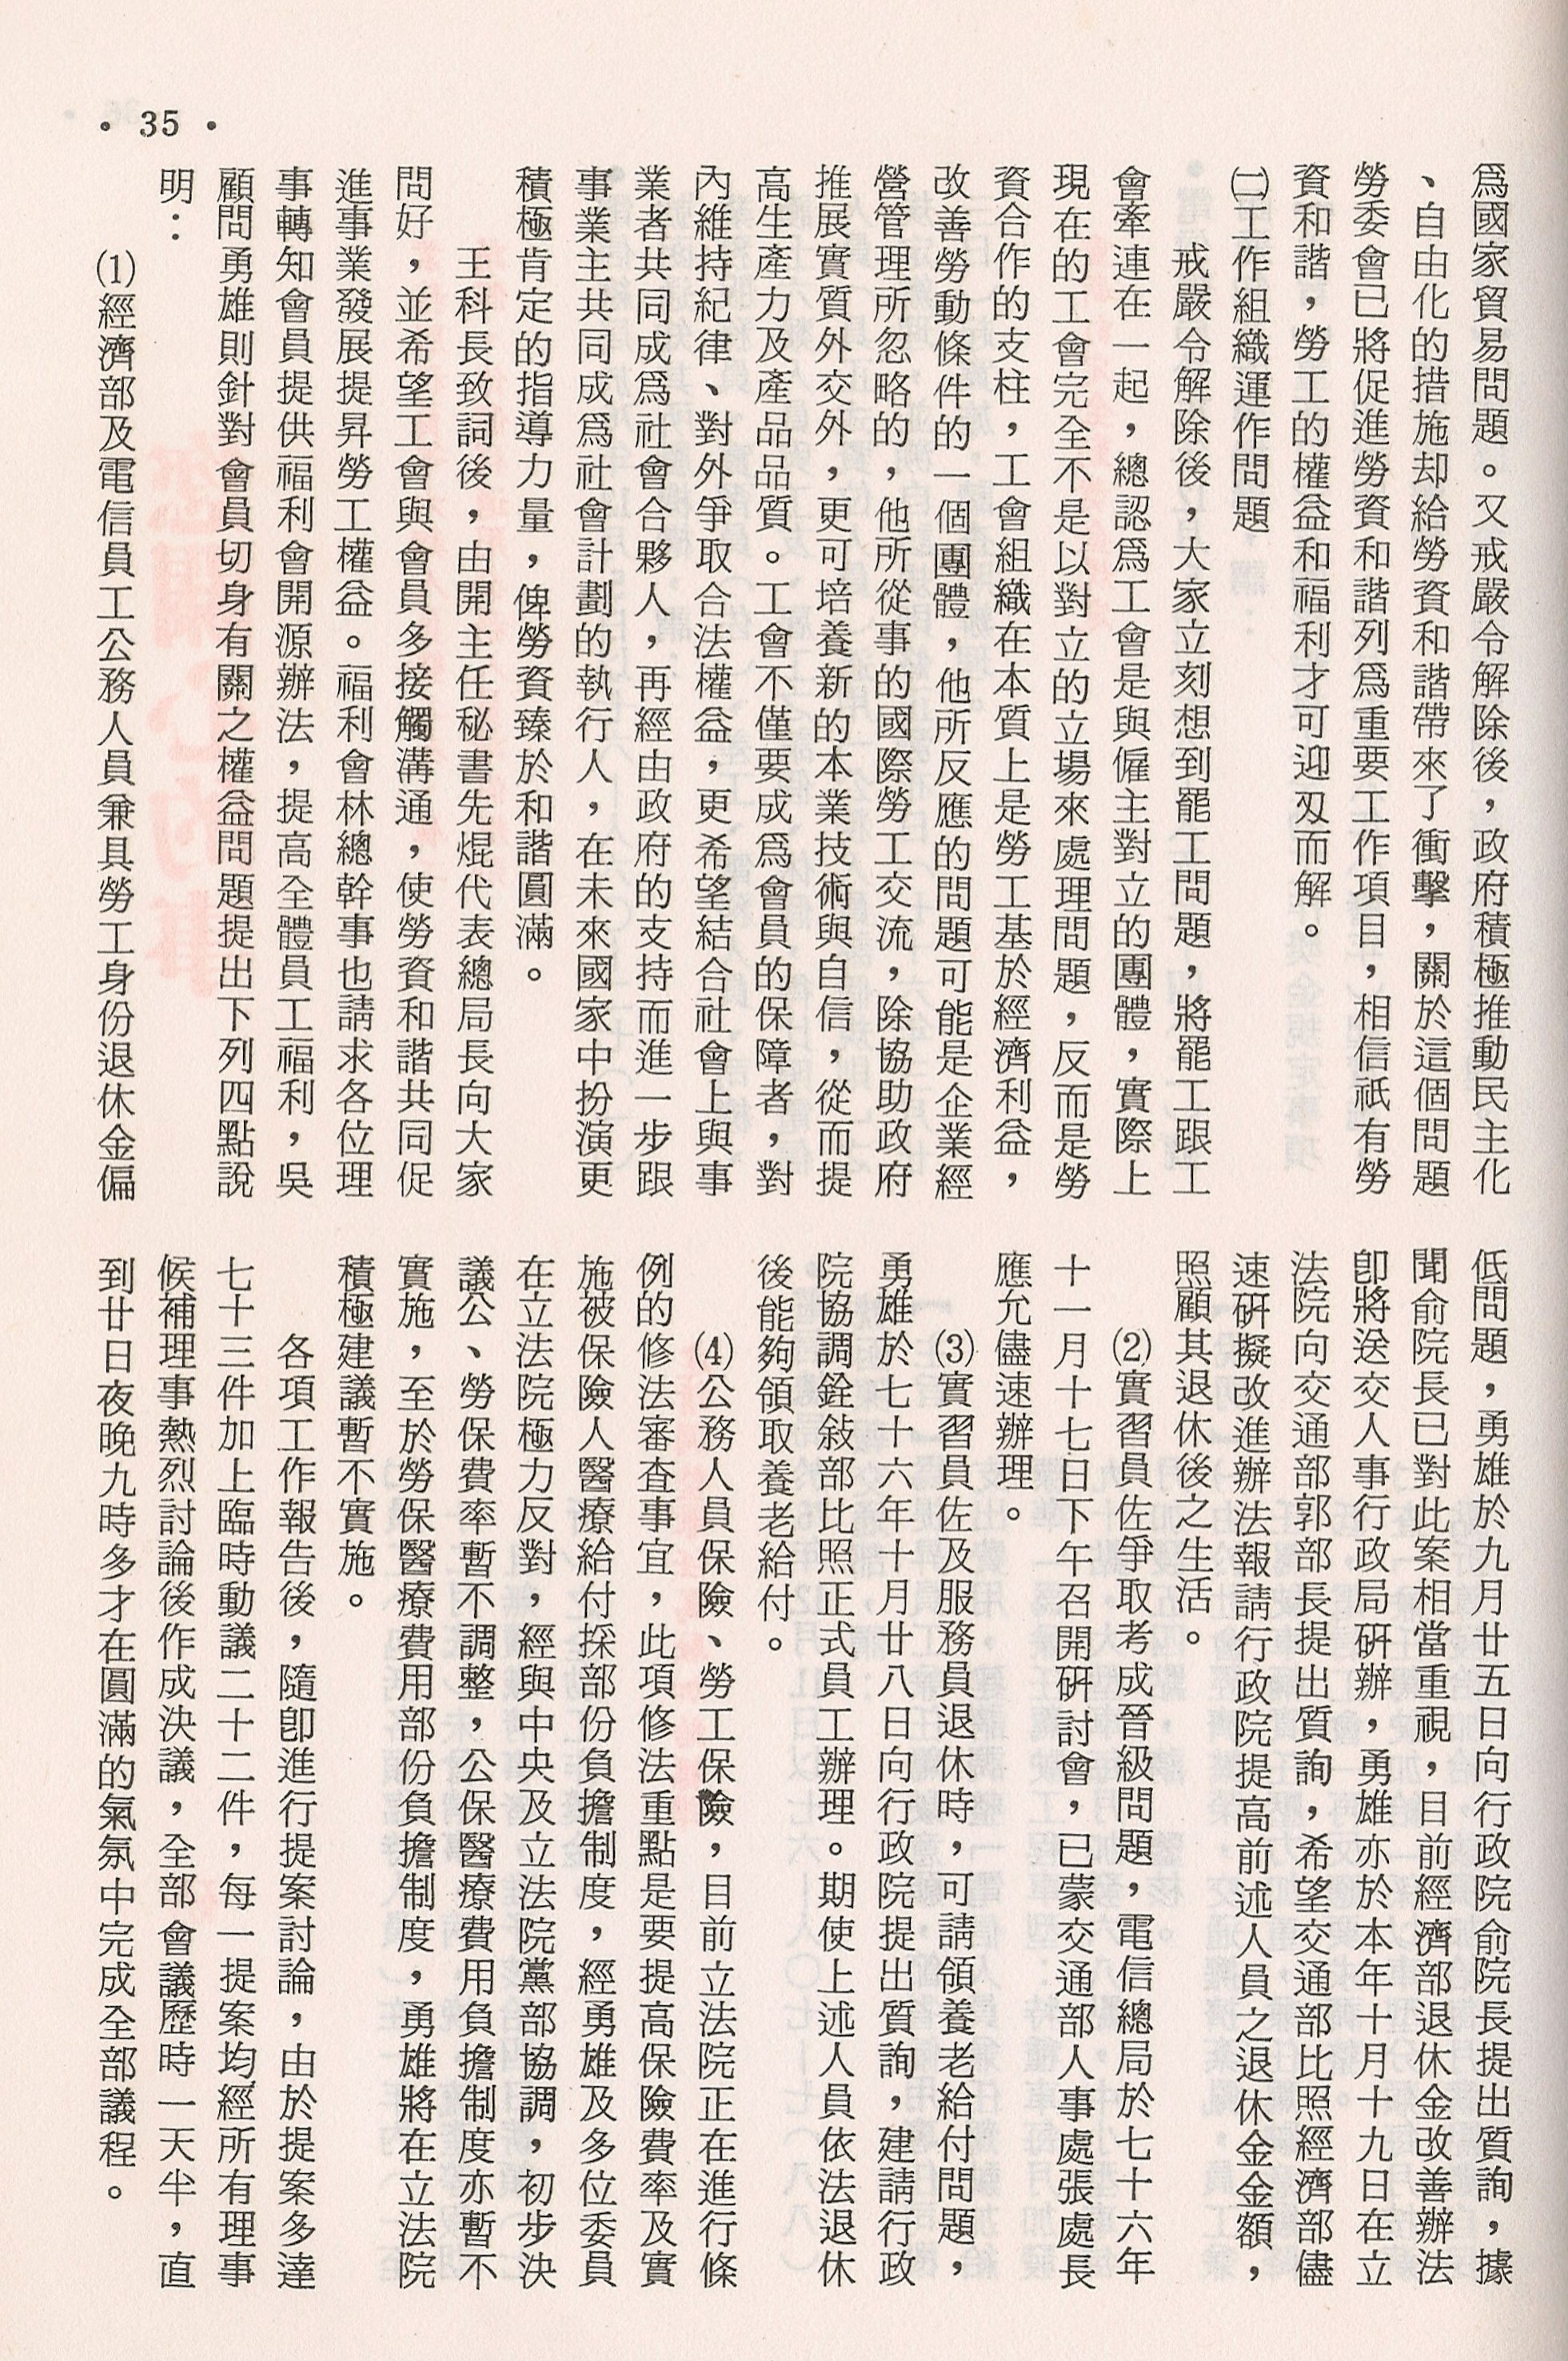 • 35 •
爲國家貿易問題。又戒嚴令解除後，政府積極推動民主化
、自由化的措施却給勞資和諧帶來了衝擊，關於這個問題
勞委會已將促進勞資和諧列爲重要工作項目，相信祇有勞
資和諧，勞工的權益和福利才可迎刄而解。
㈡工作組織運作問題
戒嚴令解除後，大家立刻想到罷工問題，將罷工跟工
會牽連在一起，總認爲工會是與僱主對立的團體，實際上
現在的工會完全不是以對立的立場來處理問題，反而是勞
資合作的支柱，工會組織在本質上是勞工基於經濟利益，
改善勞動條件的一個團體，他所反應的問題可能是企業經
營管理所忽略的，他所從事的國際勞工交流，除協助政府
推展實質外交外，更可培養新的本業技術與自信，從而提
高生產力及產品品質。工會不僅要成爲會員的保障者，對
內維持紀律、對外爭取合法權益，更希望結合社會上與事
業者共同成爲社會合夥人，再經由政府的支持而進一步跟
事業主共同成爲社會計劃的執行人，在未來國家中扮演更
積極肯定的指導力量，俾勞資臻於和諧圓滿。
王科長致詞後，由開主任秘書先焜代表總局長向大家
問好，並希望工會與會員多接觸溝通，使勞資和諧共同促
進事業發展提昇勞工權益。福利會林總幹事也請求各位理
事轉知會員提供福利會開源辦法，提高全體員工福利，吳
顧問勇雄則針對會員切身有關之權益問題提出下列四點說
明：
⑴經濟部及電信員工公務人員兼具勞工身份退休金偏
低問題，勇雄於九月廿五日向行政院俞院長提出質詢，據
聞俞院長已對此案相當重視，目前經濟部退休金改善辦法
卽將送交人事行政局硏辦，勇雄亦於本年十月十九日在立
法院向交通部郭部長提出質詢，希望交通部比照經濟部儘
速硏擬改進辦法報請行政院提高前述人員之退休金金額，
照顧其退休後之生活。
⑵實習員佐爭取考成晉級問題，電信總局於七十六年
十一月十七日下午召開硏討會，已蒙交通部人事處張處長
應允儘速辦理。
⑶實習員佐及服務員退休時，可請領養老給付問題，
勇雄於七十六年十月廿八日向行政院提出質詢，建請行政
院協調銓敍部比照正式員工辦理。期使上述人員依法退休
後能夠領取養老給付。
⑷公務人員保險、勞工保險，目前立法院正在進行條
例的修法審查事宜，此項修法重點是要提高保險費率及實
施被保險人醫療給付採部份負擔制度，經勇雄及多位委員
在立法院極力反對，經與中央及立法院黨部協調，初步決
議公、勞保費率暫不調整，公保醫療費用負擔制度亦暫不
實施，至於勞保醫療費用部份負擔制度，勇雄將在立法院
積極建議暫不實施。
各項工作報告後，隨卽進行提案討論，由於提案多達
七十三件加上臨時動議二十二件，每一提案均經所有理事
候補理事熱烈討論後作成決議，全部會議歷時一天半，直
到廿日夜晚九時多才在圓滿的氣氛中完成全部議程。